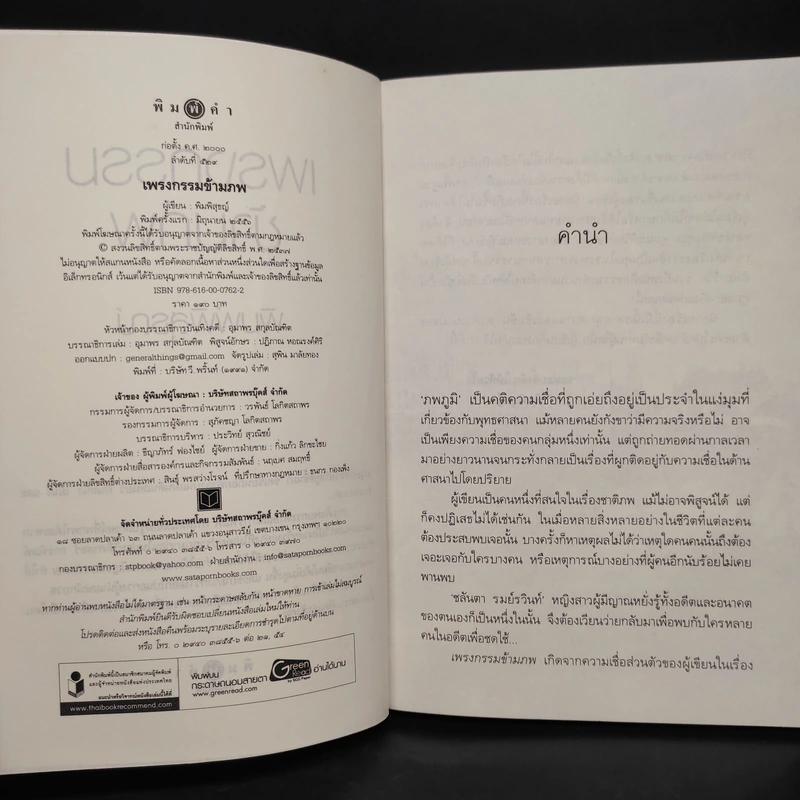 พิม พ์ คำ
สำนักพิมพ์
ก่อตั้ง ค.ศ. ๒๐๐๐
ลำดับที่ ๕๒๙
เพรงกรรมข้ามภพ
ผู้เขียน : พิมพิสุธญ์
พิมพ์ครั้งแรก : มิถุนายน ๒๕๕๖
พิมพ์โฆษณาครั้งนี้ได้รับอนุญาตจากเจ้าของลิขสิทธิ์ตามกฎหมายแล้ว
© สงวนลิขสิทธิ์ตามพระราชบัญญัติลิขสิทธิ์ พ.ศ. ๒๕๓๗
ไม่อนุญาตให้สแกนหนังสือ หรือคัดลอกเนื้อหาส่วนหนึ่งส่วนใดเพื่อสร้างฐานข้อมูล
อิเล็กทรอนิกส์ เว้นแต่ได้รับอนุญาตจากสำนักพิมพ์และเจ้าของลิขสิทธิ์แล้วเท่านั้น
ISBN 978-616-00-0762-2
ราคา ๑๙๐ บาท
หัวหน้ากองบรรณาธิการบันเทิงคดี : อุมาพร สกุลบัณฑิต
บรรณาธิการเล่ม : อุมาพร สกุลบัณฑิต พิสูจน์อักษร : ปฏิภาณ หอณรงค์ศิริ
ออกแบบปก : generalthings@gmail.com จัดรูปเล่ม : สุพิน มาลัยทอง
พิมพ์ที่ : บริษัท วี. พริ้นท์ (๑๙๙๑) จำกัด
เจ้าของ ผู้พิมพ์ผู้โฆษณา : บริษัทสถาพรบุ๊คส์ จำกัด
กรรมการผู้จัดการ/บรรณาธิการอำนวยการ : วรพันธ์ โลกิตสถาพร
รองกรรมการผู้จัดการ : สุภัคชญา โลกิตสถาพร
บรรณาธิการบริหาร : ประวิทย์ สุวณิชย์
ผู้จัดการฝ่ายผลิต : ธีญาภัทร์ ฟองไชย์ ผู้จัดการฝ่ายขาย : กิ่งแก้ว ลิกขะไชย
ผู้จัดการฝ่ายสื่อสารองค์กรและกิจกรรมสัมพันธ์ : นฤเบศ สมฤทธิ์
ผู้จัดการฝ่ายลิขสิทธิ์ต่างประเทศ : สินธุ์ พรสว่างโรจน์ ที่ปรึกษาทางกฎหมาย : ธนกร กองเพ็ง
จัดจำหน่ายทั่วประเทศโดย บริษัทสถาพรบุ๊คส์ จำกัด
๑๘ ซอยลาดปลาเค้า ๖๓ ถนนลาดปลาเค้า แขวงอนุสาวรีย์ เขตบางเขน กรุงเทพฯ ๑๐๒๒๐
โทรศัพท์ ๐ ๒๙๔๐ ๓๘๕๕-๖ โทรสาร ๐ ๒๙๔๐ ๓๙๗๐
กองบรรณาธิการ : stpbook@yahoo.com ฝ่ายสำนักงาน : info@satapornbooks.com
www.satapornbooks.com
หากท่านผู้อ่านพบหนังสือไม่ได้มาตรฐาน เช่น หน้ากระดาษสลับกัน หน้าขาดหาย การเข้าเล่มไม่สมบูรณ์
สำนักพิมพ์ยินดีรับผิดชอบเปลี่ยนหนังสือเล่มใหม่ให้ท่าน
โปรดติดต่อและส่งหนังสือคืนพร้อมระบุรายละเอียดการชำรุดไปตามที่อยู่ด้านบน
หรือ โทร. ๐ ๒๙๔๐ ๓๘๕๕-๖ ต่อ ๒๑, ๕๔
สำนักพิมพ์นี้เป็นสมาชิกสมาคมผู้จัดพิมพ์
และผู้จำหน่ายหนังสือแห่งประเทศไทย
แนะนำหรือวิจารณ์หนังสือเล่มนี้ได้ที่
www.thaibookrecommend.com
พิมพ์บน
กระดาษถนอมสายตา Green Read อ่านได้นาน
by SCG Paper
www.greenread.com
คำนำ
'ภพภูมิ' เป็นคติความเชื่อที่ถูกเอ่ยถึงอยู่เป็นประจำในแง่มุมที่
เกี่ยวข้องกับพุทธศาสนา แม้หลายคนยังกังขาว่ามีความจริงหรือไม่ อาจ
เป็นเพียงความเชื่อของคนกลุ่มหนึ่งเท่านั้น แต่ถูกถ่ายทอดผ่านกาลเวลา
มาอย่างยาวนานจนกระทั่งกลายเป็นเรื่องที่ผูกติดอยู่กับความเชื่อในด้าน
ศาสนาไปโดยปริยาย
ผู้เขียนเป็นคนหนึ่งที่สนใจในเรื่องชาติภพ แม้ไม่อาจพิสูจน์ได้ แต่
ก็คงปฏิเสธไม่ได้เช่นกัน ในเมื่อหลายสิ่งหลายอย่างในชีวิตที่แต่ละคน
ต้องประสบพบเจอนั้น บางครั้งก็หาเหตุผลไม่ได้ว่าเหตุใดคนคนนั้นถึงต้อง
เจอะเจอกับใครบางคน หรือเหตุการณ์บางอย่างที่ผู้คนอีกนับร้อยไม่เคย
พานพบ
'ชลันตา รมย์รวินท์' หญิงสาวผู้มีญาณหยั่งรู้ทั้งอดีตและอนาคต
ของตนเองก็เป็นหนึ่งในนั้น จึงต้องเวียนว่ายกลับมาเพื่อพบกับใครหลาย
คนในอดีตเพื่อชดใช้...
เพรงกรรมข้ามภพ เกิดจากความเชื่อส่วนตัวของผู้เขียนในเรื่อง